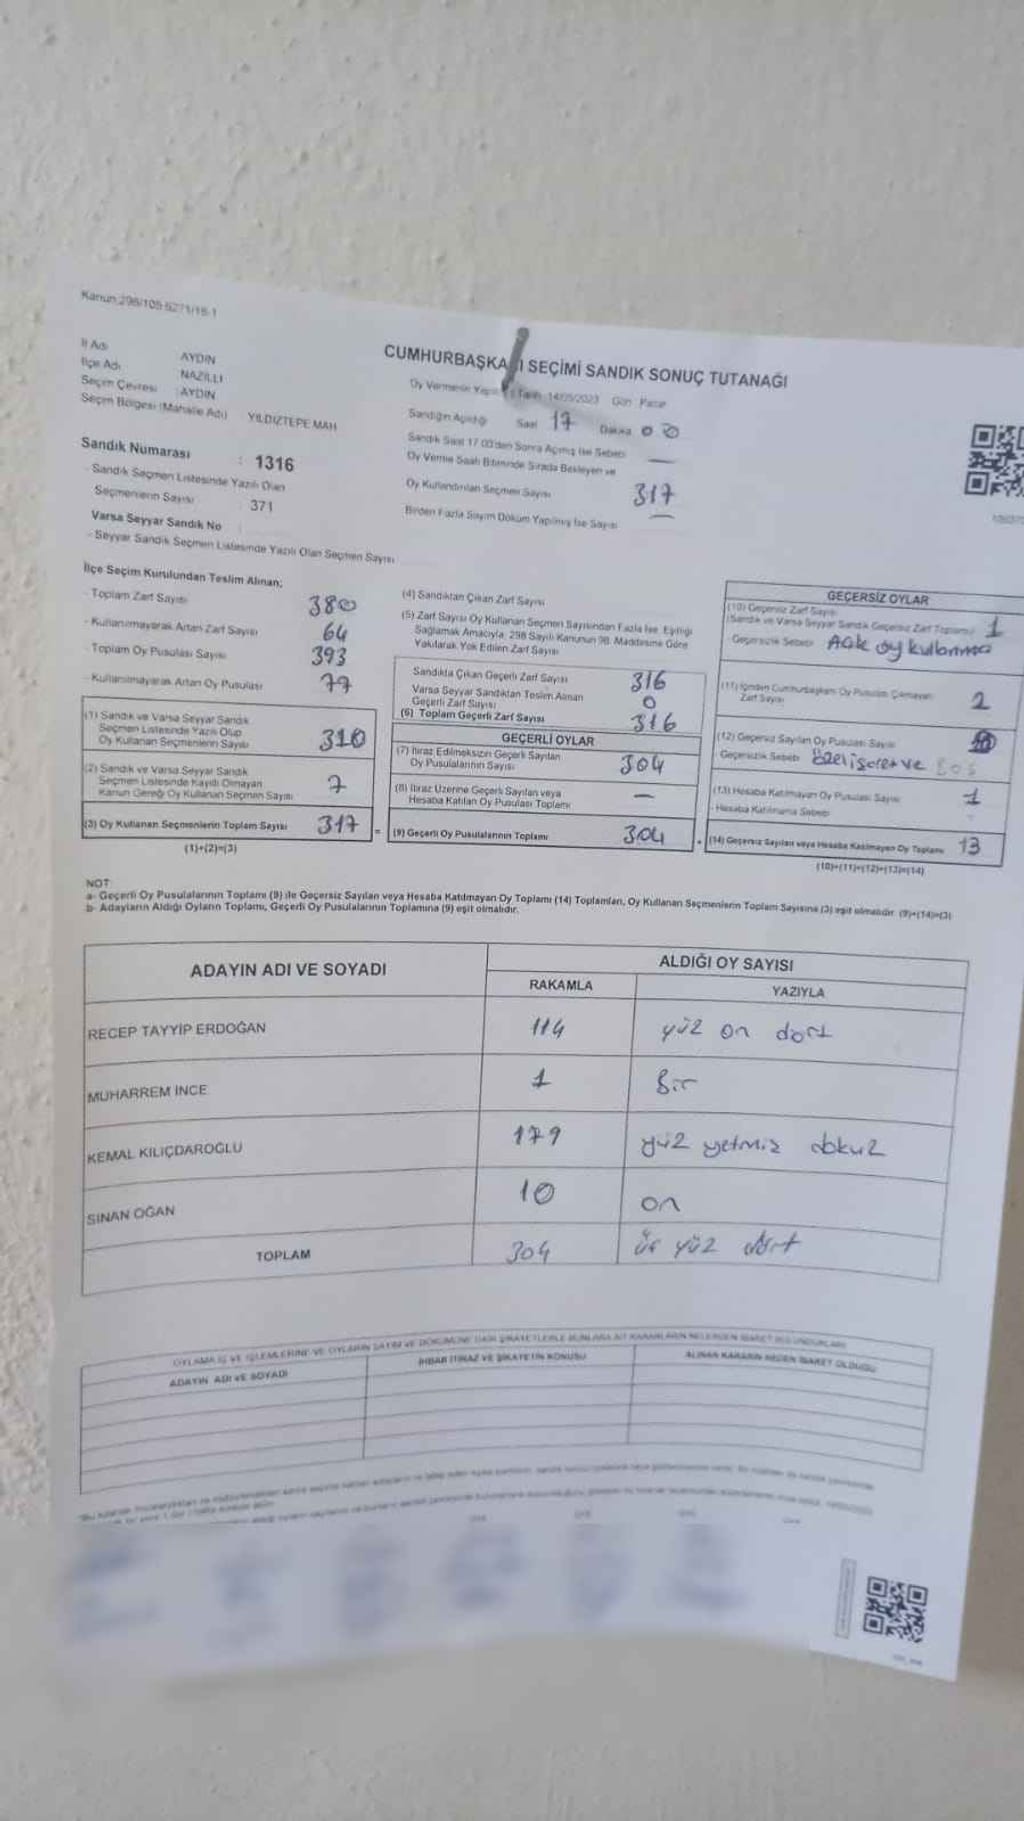 Kanun:298/105-6271/18-1
İl Adı AYDIN
İlçe Adı NAZİLLİ
Seçim Çevresi : AYDIN
Seçim Bölgesi (Mahalle Adı) YILDIZTEPE MAH
CUMHURBAŞKA I SEÇİMİ SANDIK SONUÇ TUTANAĞI
Oy Vermenin Tarihi 14/05/2023 Gün : Pazar
Sandığın Açıldığı Saat 17 Dakika 00
Sandık Saat 17.00'den Sonra Açılmış İse Sebebi —
Oy Verme Saati Bitiminde Sırada Bekleyen ve
Oy Kullandırılan Seçmen Sayısı 317
Birden Fazla Sayım Döküm Yapılmış İse Sayısı —
Sandık Numarası : 1316
- Sandık Seçmen Listesinde Yazılı Olan
Seçmenlerin Sayısı 371
Varsa Seyyar Sandık No
- Seyyar Sandık Seçmen Listesinde Yazılı Olan Seçmen Sayısı
İlçe Seçim Kurulundan Teslim Alınan;
- Toplam Zarf Sayısı 380
- Kullanılmayarak Artan Zarf Sayısı 64
- Toplam Oy Pusulası Sayısı 393
- Kullanılmayarak Artan Oy Pusulası 77
(1) Sandık ve Varsa Seyyar Sandık
Seçmen Listesinde Yazılı Olup
Oy Kullanan Seçmenlerin Sayısı 310
(2) Sandık ve Varsa Seyyar Sandık
Seçmen Listesinde Kayıtlı Olmayan
Kanun Gereği Oy Kullanan Seçmen Sayısı 7
(3) Oy Kullanan Seçmenlerin Toplam Sayısı 317 =
(1)+(2)=(3)
(4) Sandıktan Çıkan Zarf Sayısı
(5) Zarf Sayısı Oy Kullanan Seçmen Sayısından Fazla İse, Eşitliği
Sağlamak Amacıyla, 298 Sayılı Kanunun 98. Maddesine Göre
Yakılarak Yok Edilen Zarf Sayısı
Sandıkta Çıkan Geçerli Zarf Sayısı 316
Varsa Seyyar Sandıktan Teslim Alınan
Geçerli Zarf Sayısı 0
(6) Toplam Geçerli Zarf Sayısı 316
GEÇERLİ OYLAR
(7) İtiraz Edilmeksizin Geçerli Sayılan
Oy Pusulalarının Sayısı 304
(8) İtiraz Üzerine Geçerli Sayılan veya
Hesaba Katılan Oy Pusulası Toplamı —
(9) Geçerli Oy Pusulalarının Toplamı 304
GEÇERSİZ OYLAR
(10) Geçersiz Zarf Sayısı
(Sandık ve Varsa Seyyar Sandık Geçersiz Zarf Toplamı) 1
- Geçersizlik Sebebi Açık oy kullanma
(11) İçinden Cumhurbaşkanı Oy Pusulası Çıkmayan
Zarf Sayısı 2
(12) Geçersiz Sayılan Oy Pusulası Sayısı
Geçersizlik Sebebi özel işaret ve BOŞ
(13) Hesaba Katılmayan Oy Pusulası Sayısı 1
- Hesaba Katılmama Sebebi
(14) Geçersiz Sayılan veya Hesaba Katılmayan Oy Toplamı 13
(10)+(11)+(12)+(13)=(14)
NOT
a- Geçerli Oy Pusulalarının Toplamı (9) ile Geçersiz Sayılan veya Hesaba Katılmayan Oy Toplamı (14) Toplamları, Oy Kullanan Seçmenlerin Toplam Sayısına (3) eşit olmalıdır. (9)+(14)=(3)
b- Adayların Aldığı Oyların Toplamı, Geçerli Oy Pusulalarının Toplamına (9) eşit olmalıdır.
ADAYIN ADI VE SOYADI ALDIĞI OY SAYISI
RAKAMLA YAZIYLA
RECEP TAYYİP ERDOĞAN 114 yüz on dört
MUHARREM İNCE 1 Bir
KEMAL KILIÇDAROĞLU 179 yüz yetmiş dokuz
SİNAN OĞAN 10 on
TOPLAM 304 üç yüz dört
ADAYIN ADI VE SOYADI İHBAR İTİRAZ VE ŞİKAYETİN KONUSU ALINAN KARARIN NEDEN İBARET OLDUĞU